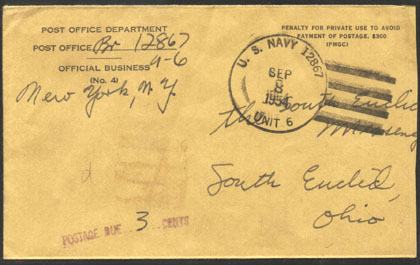 POST OFFICE DEPARTMENT
POST OFFICE Br 12867
U-6
OFFICIAL BUSINESS
(No. 4)
New York, N.Y.
PENALTY FOR PRIVATE USE TO AVOID
PAYMENT OF POSTAGE, $300
(PMGC)
U. S. NAVY 12867
SEP
8
1954
UNIT 6
South Euclid
South Euclid,
Ohio
POSTAGE DUE 3 CENTS